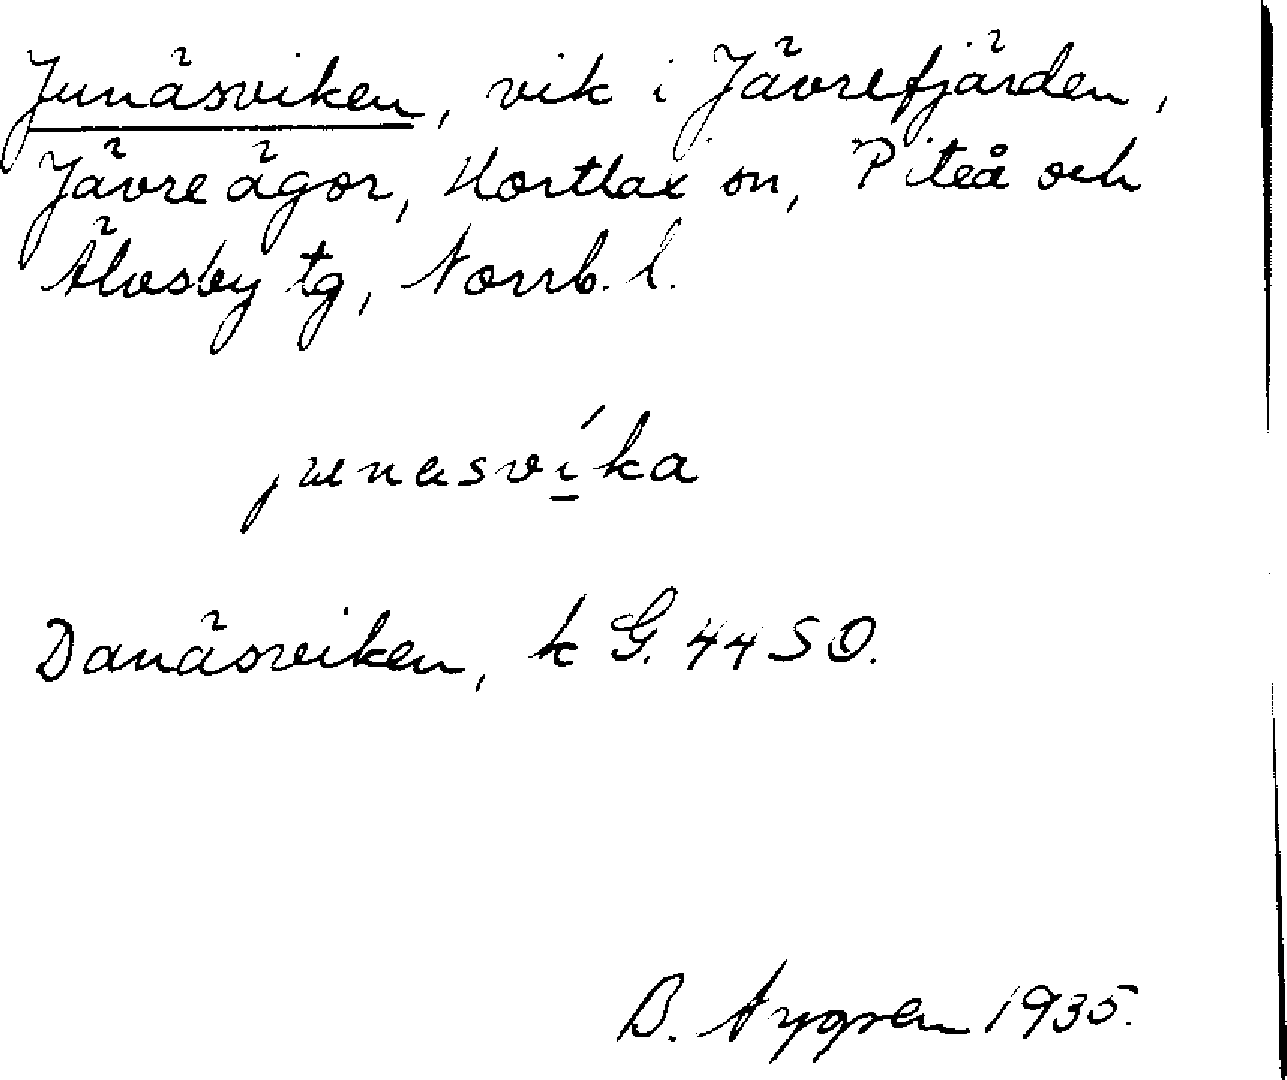 Junäsviken, vik i Jävrefjärden,
Jävre ägor, Hortlax sn, Piteå och
Älvsby tg, Norrb. l.
junasvíka
Danäsviken, k G. 44 SO.
B. Nygren 1935.